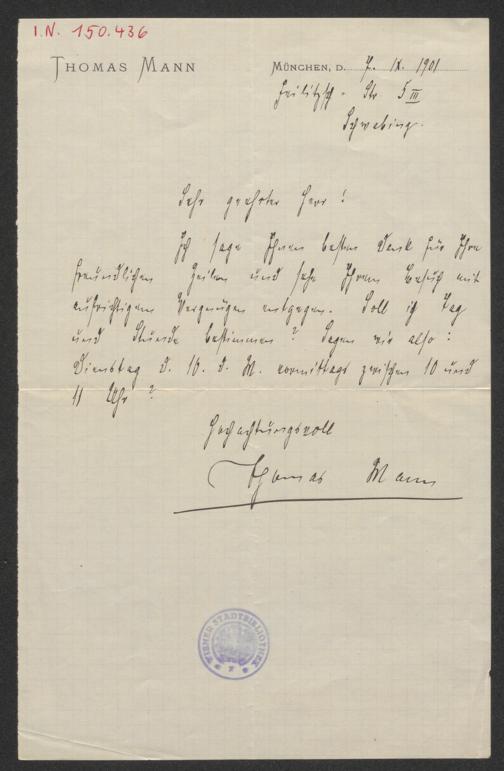 I.N. 150.436
THOMAS MANN
MÜNCHEN, D. 7. IX. 1901
Feilitzsch-Str. 5 III
Schwabing.
Sehr geehrter Herr!
Ich sage Ihnen besten Dank für Ihre
freundlichen Zeilen und sehe Ihrem Besuch mit
aufrichtigem Vergnügen entgegen. Soll ich Tag
und Stunde bestimmen? Sagen wir also:
Dienstag d. 10. d. M. vormittags zwischen 10 und
11 Uhr?
Hochachtungsvoll
Thomas Mann
WIENER STADTBIBLIOTHEK